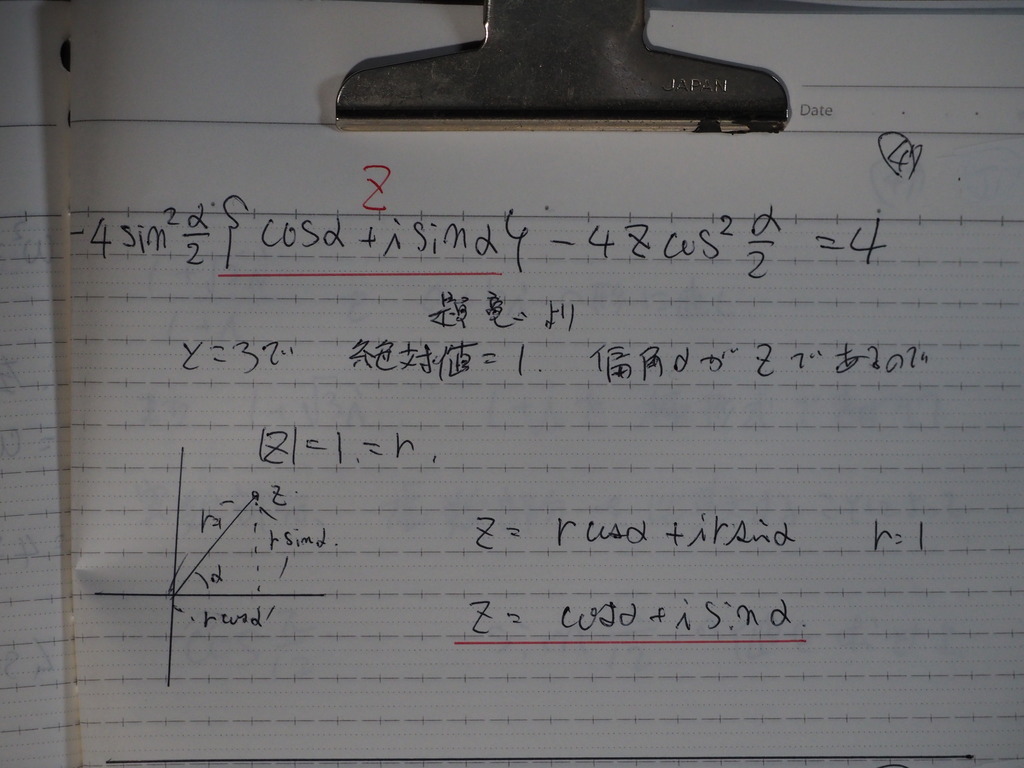 JAPAN
Date
④
Z
-4 sin² α/2 { cosα + i sinα } - 4 z cos² α/2 = 4
題意より
r=1で 絶対値=1. 偏角αがzであるので
|Z| = 1. = r.
z
r=1
r sinα.
α
r cosα
z = r cosα + i r sinα r=1
z = cosα + i sinα.